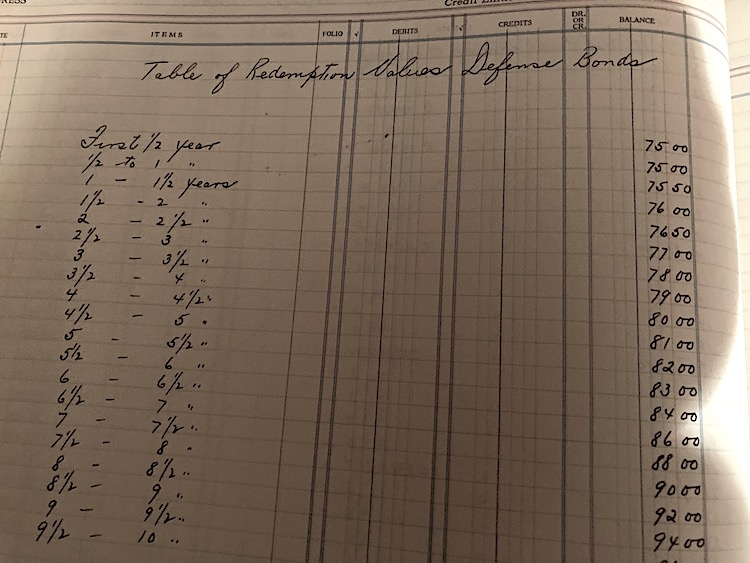 RESS Credit Limit
TE ITEMS FOLIO ✓ DEBITS ✓ CREDITS DR. OR CR. BALANCE
Table of Redemption Values Defense Bonds
First 1/2 year 75 00
1/2 to 1 " 75 00
1 - 1 1/2 years 75 50
1 1/2 - 2 " 76 00
2 - 2 1/2 " 76 50
2 1/2 - 3 " 77 00
3 - 3 1/2 " 78 00
3 1/2 - 4 " 79 00
4 - 4 1/2 " 80 00
4 1/2 - 5 " 81 00
5 - 5 1/2 " 82 00
5 1/2 - 6 " 83 00
6 - 6 1/2 " 84 00
6 1/2 - 7 " 86 00
7 - 7 1/2 " 88 00
7 1/2 - 8 " 90 00
8 - 8 1/2 " 92 00
8 1/2 - 9 " 94 00
9 - 9 1/2 "
9 1/2 - 10 "